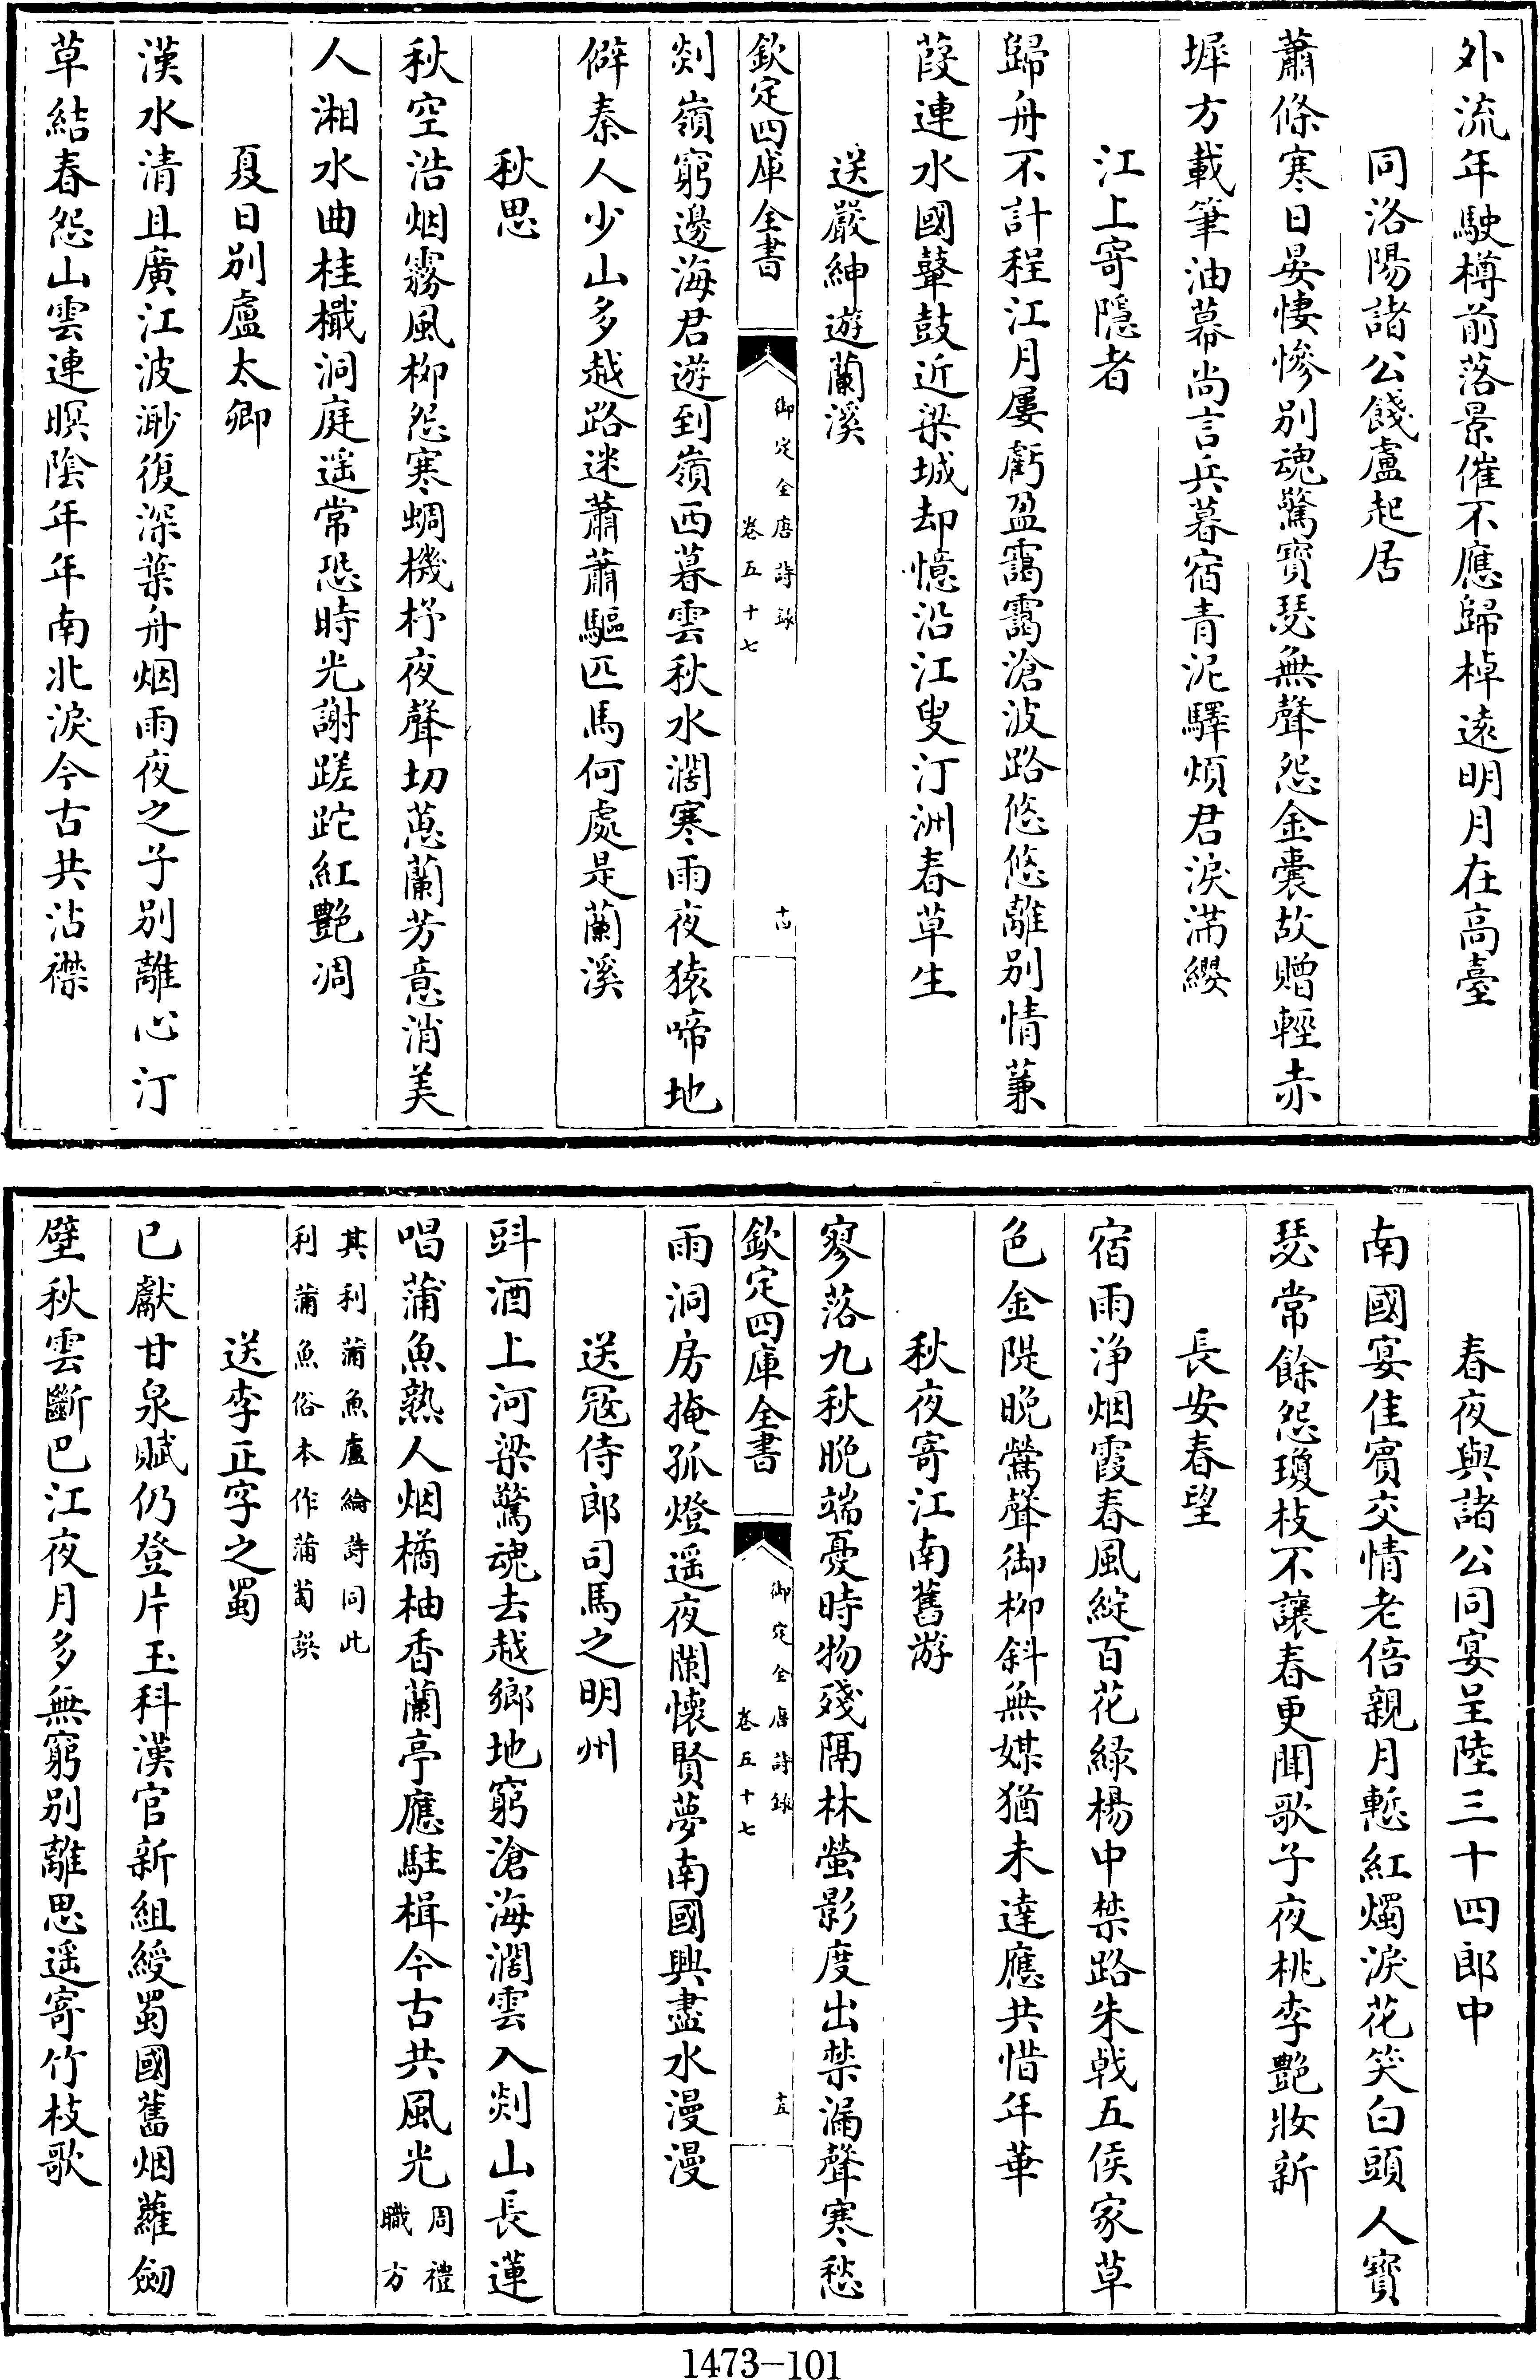 外流年駛樽前落景催不應歸棹遠明月在高臺
同洛陽諸公餞盧起居
蕭條寒日晏悽慘別魂驚寶瑟無聲怨金囊故贈輕赤
墀方載筆油幕尚言兵暮宿青泥驛煩君淚滿纓
江上寄隱者
歸舟不計程江月屢虧盈靄靄滄波路悠悠離別情蒹
葭連水國鼙鼓近梁城却憶沿江叟汀洲春草生
送嚴紳遊蘭溪
欽定四庫全書
御定全唐詩録
卷五十七
十四
剡嶺窮邊海君遊到嶺西暮雲秋水濶寒雨夜猿啼地
僻秦人少山多越路迷蕭蕭驅匹馬何處是蘭溪
秋思
秋空浩烟霧風柳怨寒蜩機杼夜聲切蕙蘭芳意消美
人湘水曲桂檝洞庭遥常恐時光謝蹉跎紅艷凋
夏日別盧太卿
漢水清且廣江波渺復深葉舟烟雨夜之子別離心汀
草結春怨山雲連暝陰年年南北淚今古共沾襟
春夜與諸公同宴呈陸三十四郎中
南國宴佳賓交情老倍親月慙紅燭淚花笑白頭人寶
瑟常餘怨瓊枝不讓春更聞歌子夜桃李艷妝新
長安春望
宿雨浄烟霞春風綻百花緑楊中禁路朱戟五侯家草
色金隄晚鶯聲御柳斜無媒猶未達應共惜年華
秋夜寄江南舊游
寥落九秋晚端憂時物殘隔林螢影度出禁漏聲寒愁
欽定四庫全書
御定全唐詩録
卷五十七
十五
雨洞房掩孤燈遥夜闌懷賢夢南國興盡水漫漫
送寇侍郎司馬之明州
㪷酒上河梁驚魂去越鄉地窮滄海濶雲入剡山長蓮
唱蒲魚熟人烟橘柚香蘭亭應駐楫今古共風光周禮
職方
其利蒲魚盧綸詩同此
利蒲魚俗本作蒲萄誤
送李正字之蜀
已獻甘泉賦仍登片玉科漢官新組綬蜀國舊烟蘿劒
壁秋雲斷巴江夜月多無窮別離思遥寄竹枝歌
1473-101